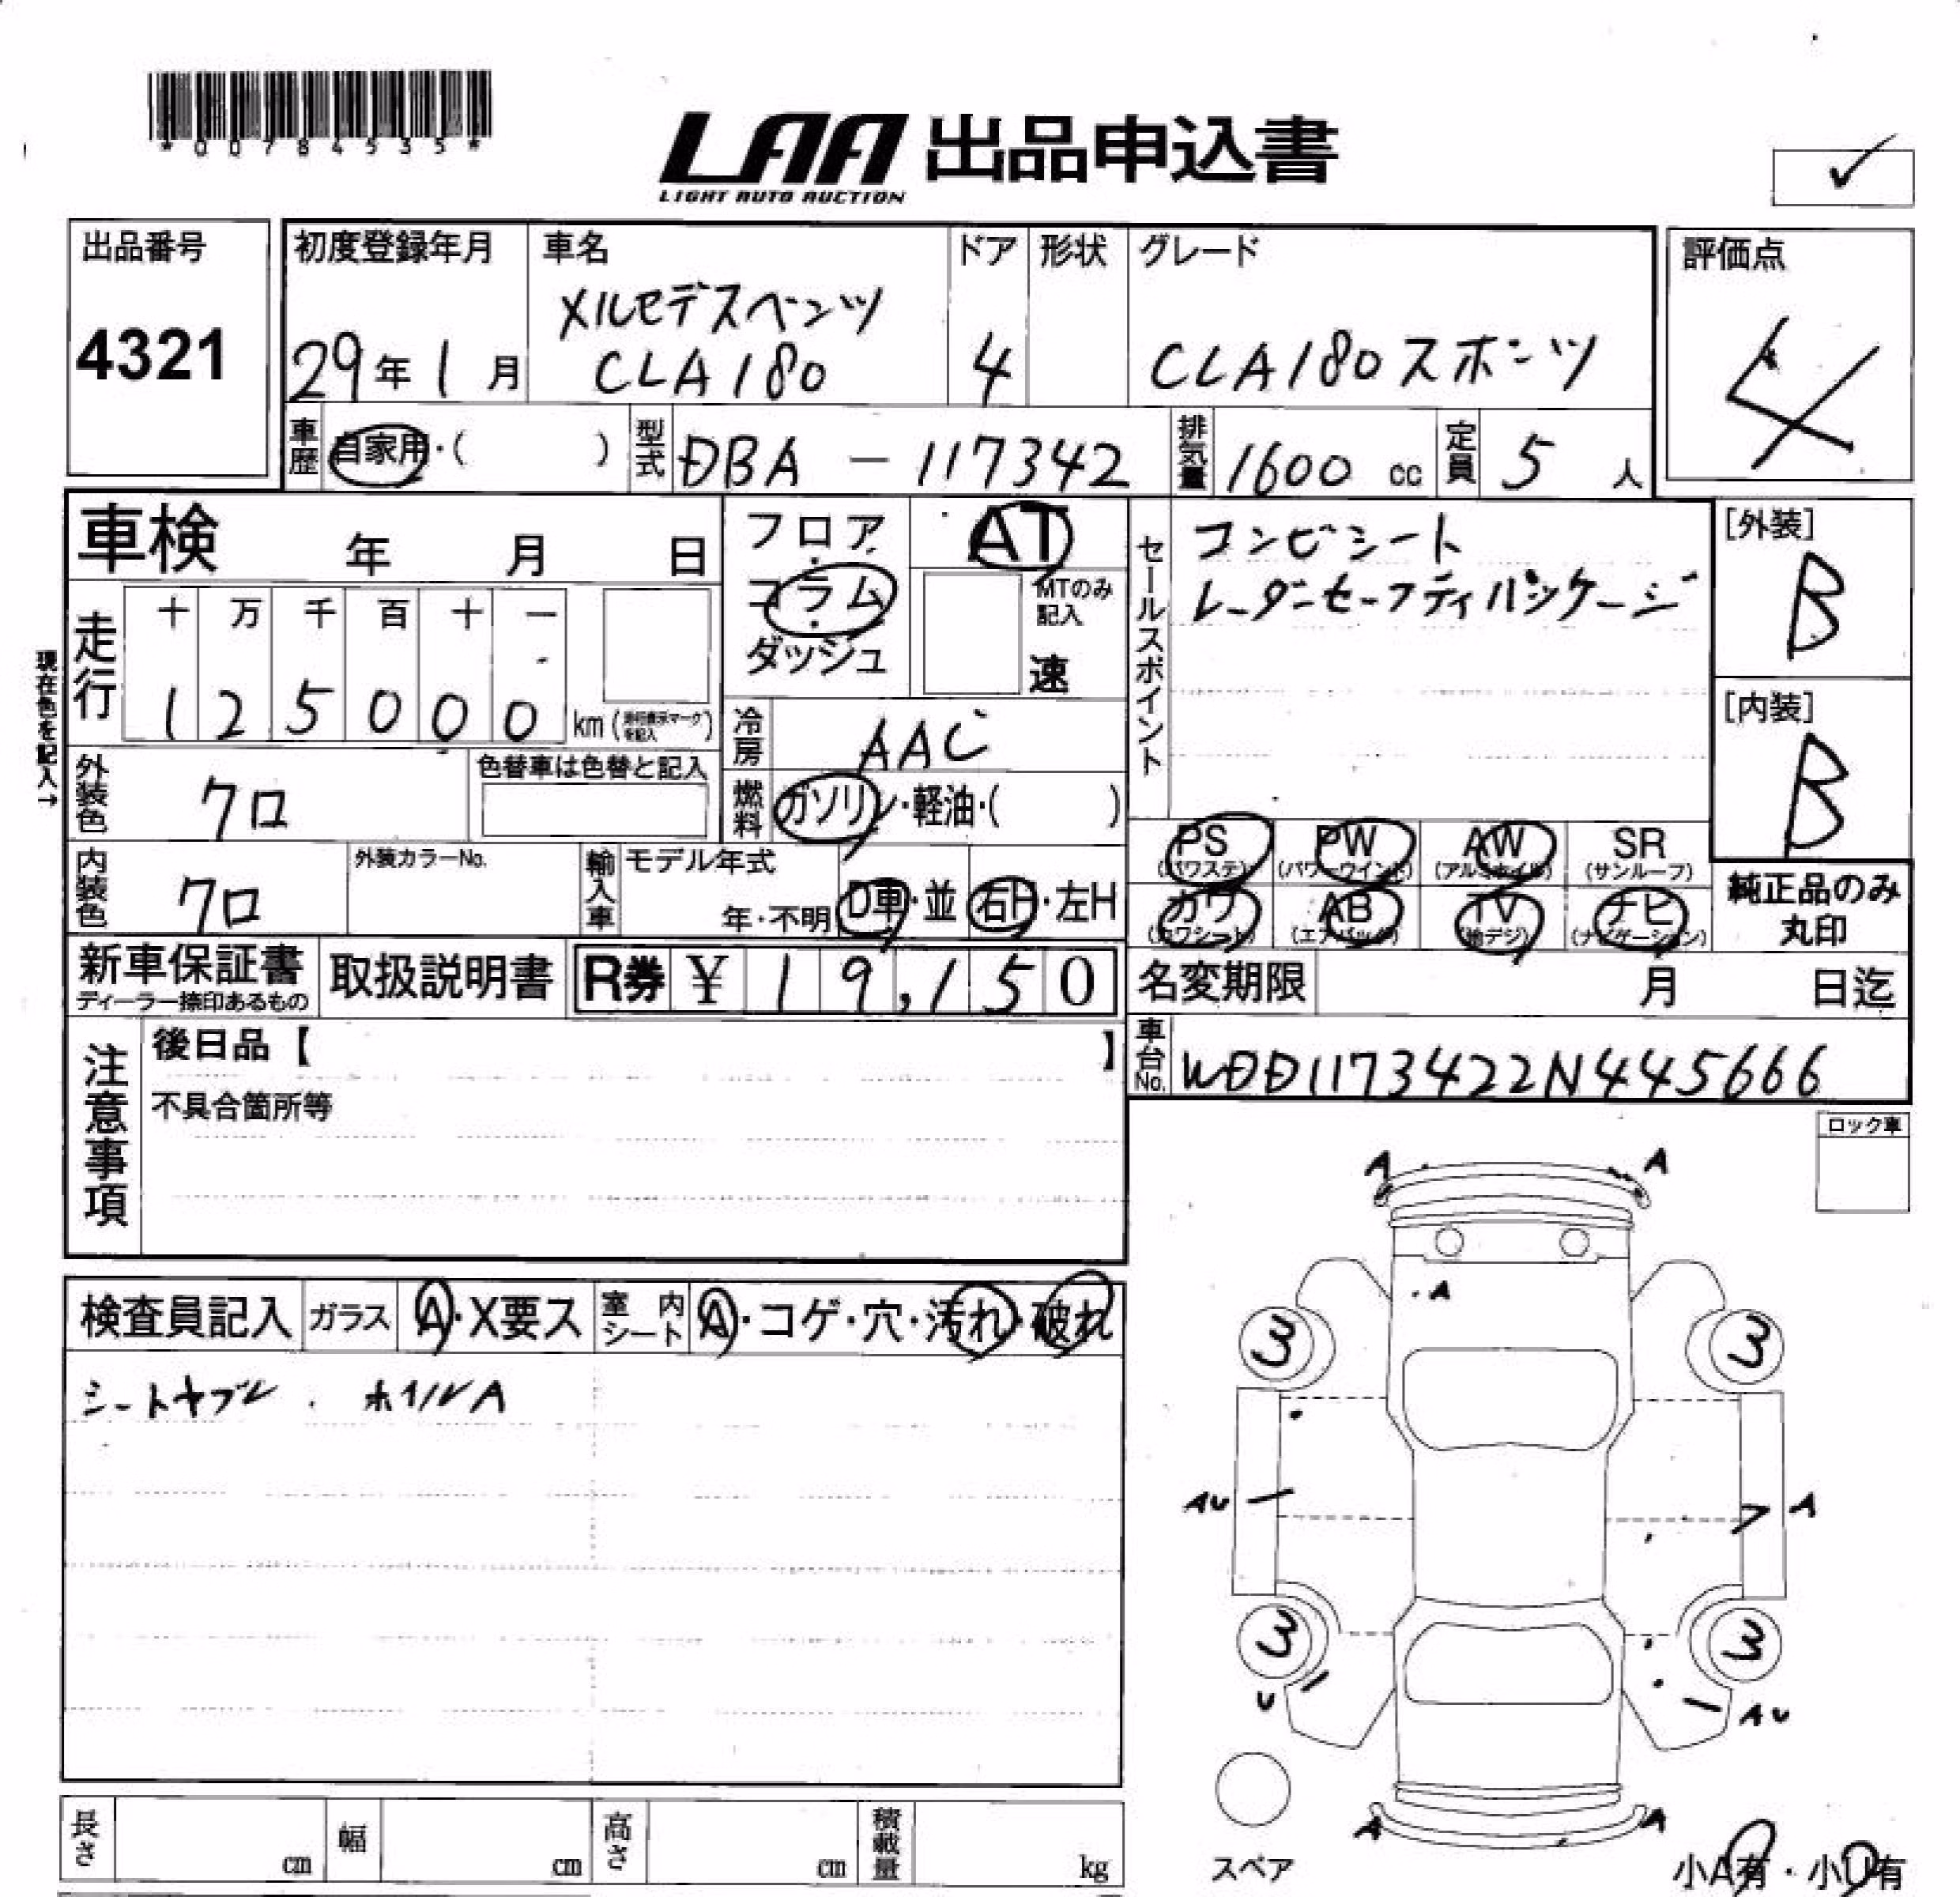 *00784535*
LAA 出品申込書
LIGHT AUTO AUCTION
出品番号
4321
初度登録年月
29年1月
車名
メルセデスベンツ
CLA180
ドア
4
形状
グレード
CLA180スポーツ
評価点
4
車歴
自家用・( )
型式
DBA - 117342
排気量
1600 cc
定員
5 人
車検 年 月 日
現在色を記入→
走行
十 万 千 百 十 一
1 2 5 0 0 0 km
フロア
・
コラム
・
ダッシュ
AT
MTのみ
記入
速
冷房
AAC
燃料
ガソリン・軽油・( )
外装色
クロ
色替車は色替と記入
内装色
クロ
外装カラーNo.
輸入車
モデル年式
年・不明
D車・並
右H・左H
セールスポイント
コンビシート
レーダーセーフティパッケージ
[外装]
B
[内装]
B
PS
(パワステ)
PW
(パワーウインド)
AW
(アルミホイル)
SR
(サンルーフ)
カワ
(カワシート)
AB
(エアバック)
TV
(地デジ)
ナビ
(ナビゲーション)
純正品のみ
丸印
新車保証書
ディーラー捺印あるもの
取扱説明書
R券 ¥ 19,150
名変期限 月 日迄
車台No.
WDD1173422N445666
注意事項
後日品【 】
不具合箇所等
ロック車
検査員記入
ガラス
A・X要ス
室内シート
A・コゲ・穴・汚れ・破れ
シートヤブレ . ホイルA
A
A
A
3
3
AU
A
3
3
U
AU
A
A
スペア
小A有・小U有
長さ cm
幅 cm
高さ cm
積載量 kg